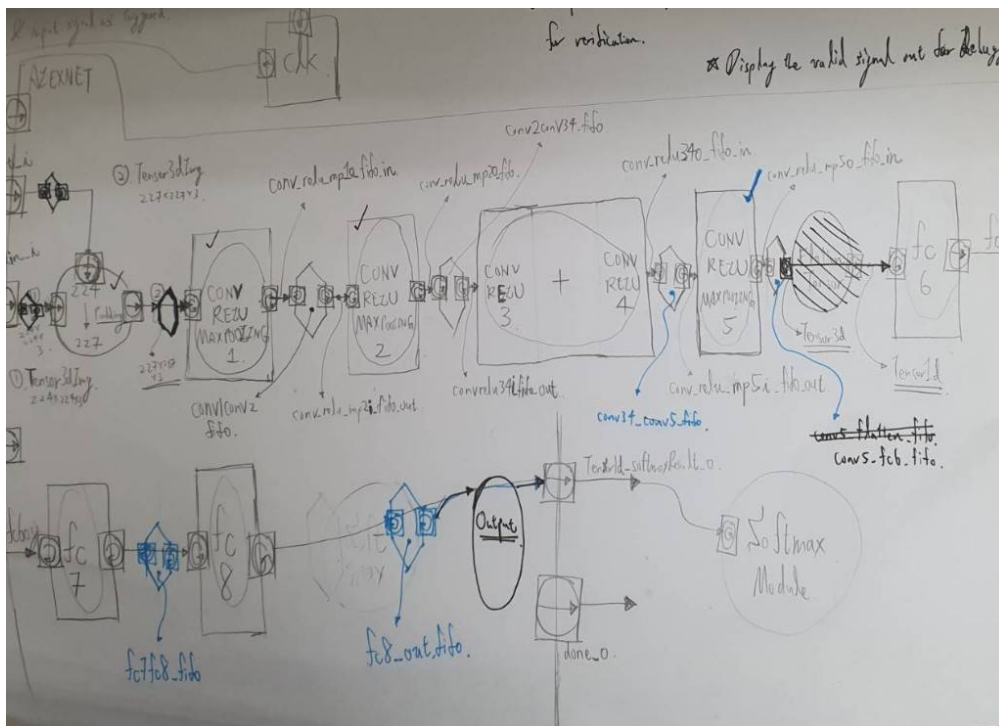 & input signal as triggered.
clk
for verification.
☆ Display the valid signal out for Debug
ALEXNET
② Tensor3dImg
227x227x3.
conv_relu_mp1o_fifo_in
conv_relu_mp2o_fifo.
conv2conv34.fifo
conv_relu34o_fifo_in
conv_relu_mp5o_fifo_in
224
Padding
227
3.
②
CONV
RELU
MAXPOOLING
1
CONV
RELU
MAXPOOLING
2
CONV
RELU
3
+
CONV
RELU
4
CONV
RELU
MAXPOOLING
5
fc
6
① Tensor3dImg
224x224x3
conv1conv2
fifo.
conv_relu_mp2i_fifo_out
convrelu34i_fifo_out
conv34_conv5_fifo.
conv_relu_mp5i_fifo_out
Tensor3d
Tensor1d
conv5_flatten_fifo.
conv5_fc6_fifo.
fc
7
fc
8
Output
Tensor1d_softmaxResult_o
Softmax
Module
fc7fc8_fifo
fc8_out_fifo.
done_o.